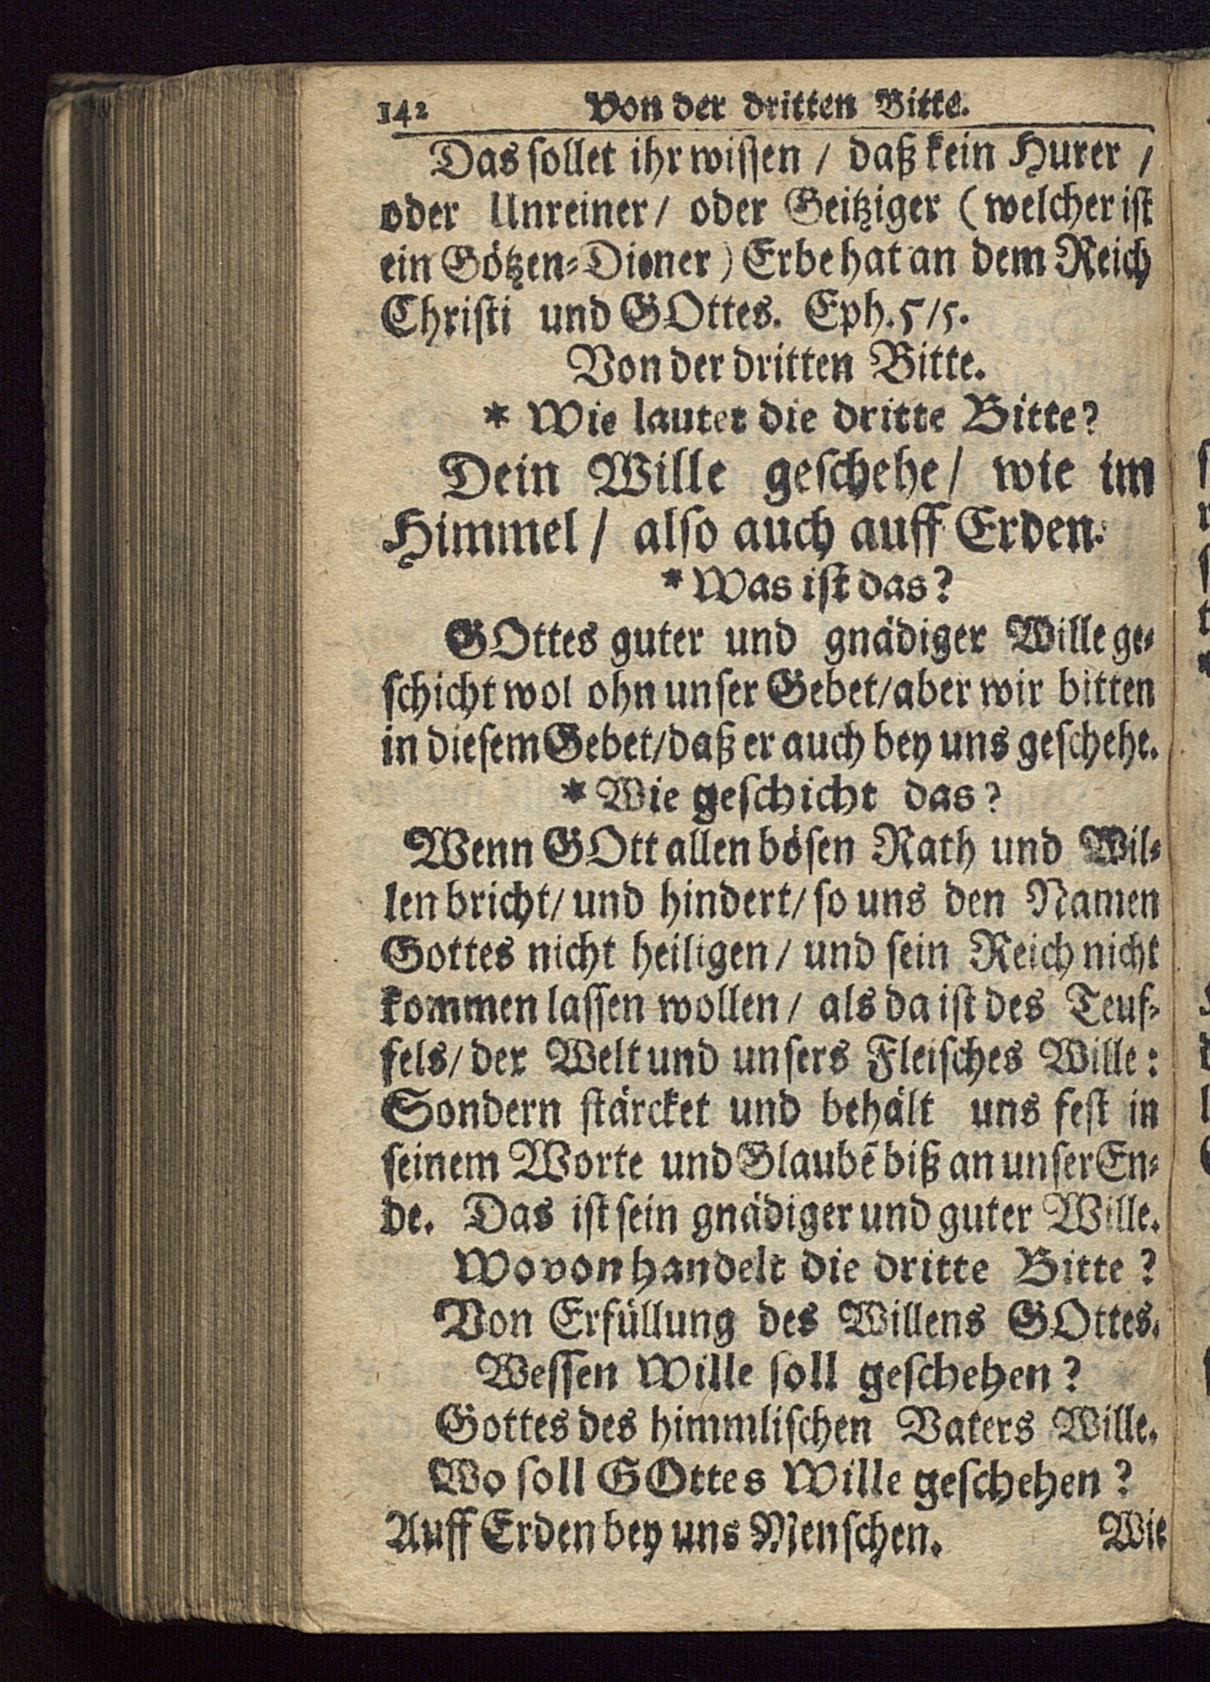 142 Von der dritten Bitte.
Das sollet ihr wissen / daß kein Hurer /
oder Unreiner / oder Geitziger ( welcher ist
ein Götzen-Diener ) Erbe hat an dem Reich
Christi und GOttes. Eph. 5/5.
Von der dritten Bitte.
* Wie lautet die dritte Bitte?
Dein Wille geschehe / wie im
Himmel / also auch auff Erden.
* Was ist das?
GOttes guter und gnädiger Wille ge-
schicht wol ohn unser Gebet / aber wir bitten
in diesem Gebet / daß er auch bey uns geschehe.
* Wie geschicht das?
Wenn GOtt allen bösen Rath und Wil-
len bricht / und hindert / so uns den Namen
Gottes nicht heiligen / und sein Reich nicht
kommen lassen wollen / als da ist des Teuf-
fels / der Welt und unsers Fleisches Wille:
Sondern stärcket und behält uns fest in
seinem Worte und Glaubẽ biß an unser En-
de. Das ist sein gnädiger und guter Wille.
Wovon handelt die dritte Bitte?
Von Erfüllung des Willens GOttes.
Wessen Wille soll geschehen?
Gottes des himmlischen Vaters Wille.
Wo soll GOttes Wille geschehen?
Auff Erden bey uns Menschen. Wie